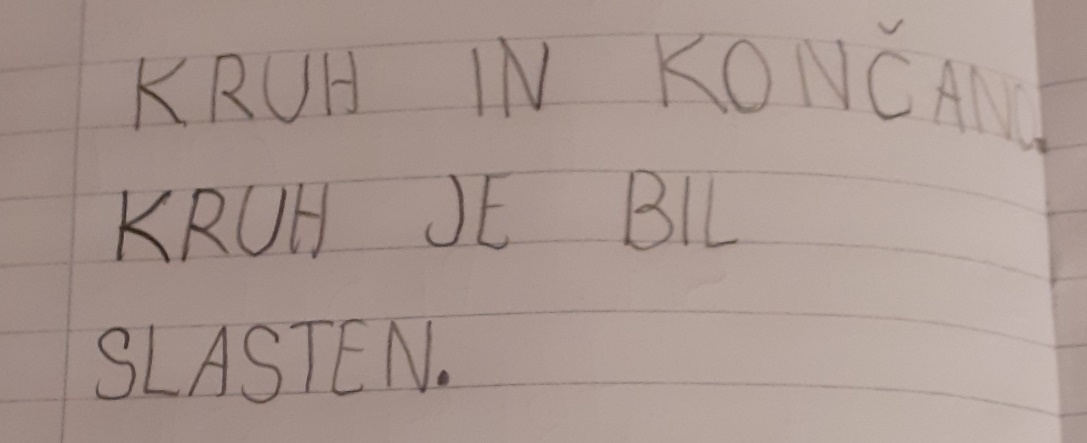 KRUH IN KONČANO.
KRUH JE BIL
SLASTEN.